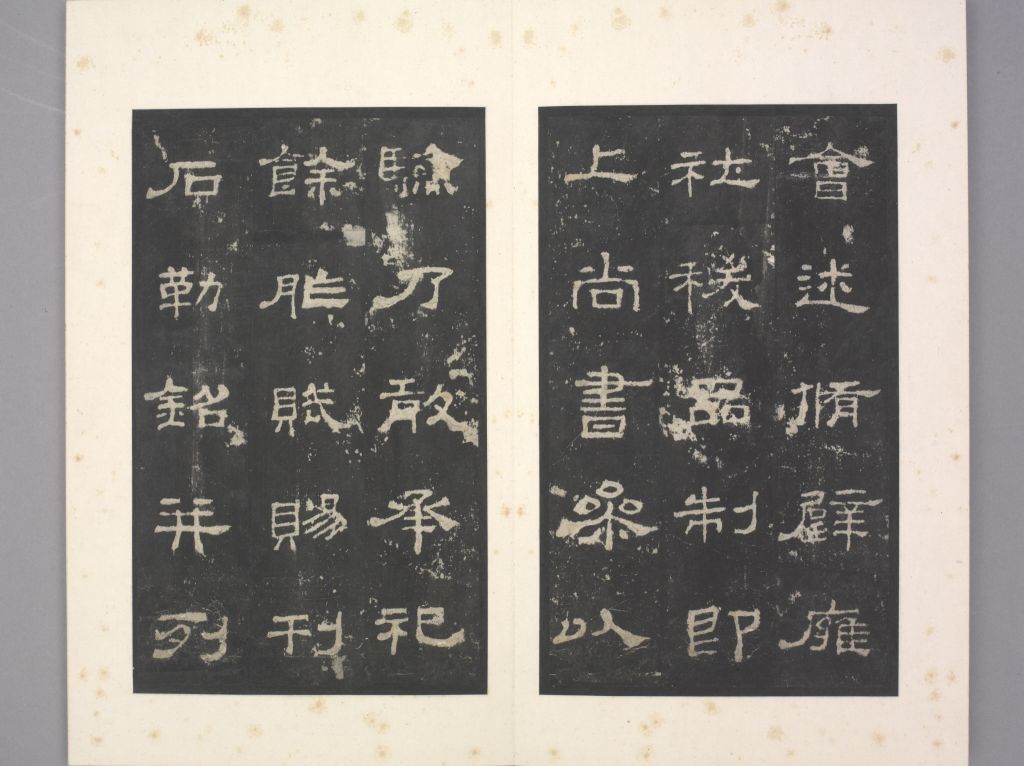 會述脩辟雍
社稷品制即
上尚書參以
驗乃敢承祀
餘胙賦賜刊
石勒銘并列